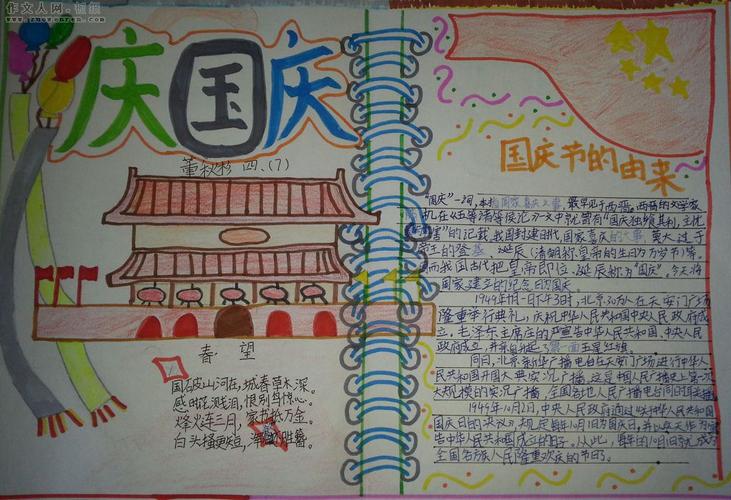 作文人网·板报
www.zuowenren.com
庆国庆
董秋彬 四.(7)
春 望
国破山河在,城春草木深。
感时花溅泪,恨别鸟惊心。
烽火连三月,家书抵万金
白头搔更短,浑欲胜簪。
国庆节的由来
"国庆"一词,本指国家喜庆之事,最早见于西晋。西晋的文学家
机在《五等诸侯论》一文中就曾有"国庆独飨其利,主忧
其害"的记载、我国封建时代、国家喜庆的大事,莫大过于
帝王的登基、诞辰(清朝称皇帝的生日为万岁节)等。
因而我国古代把皇帝即位、诞辰称为"国庆"。今天将
国家建立的纪念日为国庆。
1949年10月1日下午3时,北京30万人在天安门广场
隆重举行典礼,庆祝中华人民共和国中央人民政府成
立,毛泽东主席庄严宣告中华人民共和国、中央人民
政府成立,并亲自升起了第一面五星红旗。
同日,北京新华广播电台在天安门广场进行中华人
民共和国开国大典实况广播,这是中国人民广播史上第一次
大规模的实况广播,全国各地人民广播电台同时日转播
1949年10月2日,中央人民政府通过《关于中华人民共和国
国庆日的决议》,规定每年10月1日为国庆日,并以这一天作为宣
告中华人民共和国成立的日子。从此,每年的10月1日就成为
全国各族人民隆重欢庆的节日。